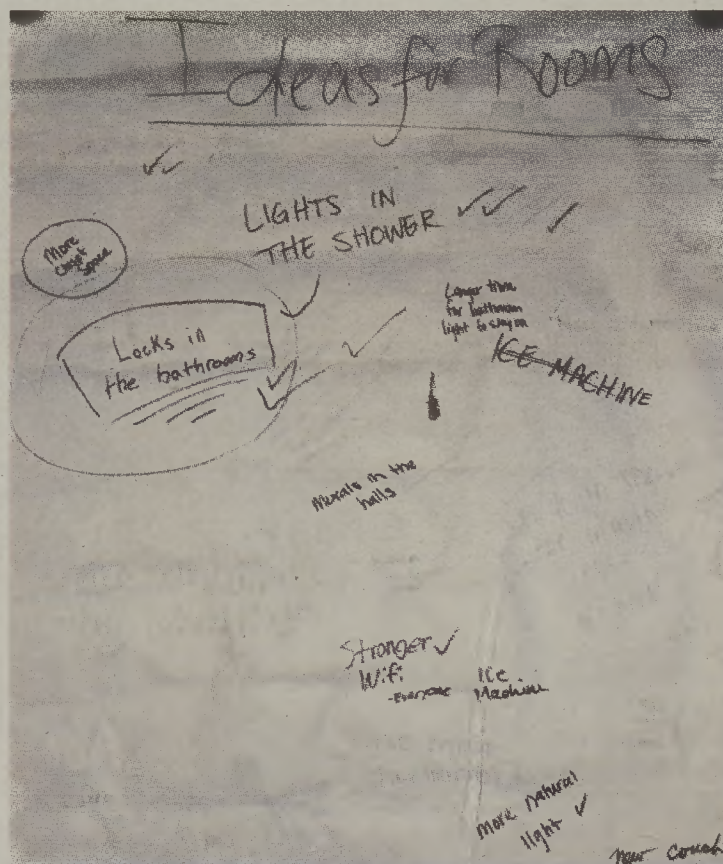 Ideas for Rooms
LIGHTS IN
THE SHOWER
More
closet
space
Locks in
the bathrooms
Longer time
for bathroom
light to stay on
ICE MACHINE
Murals in the
halls
Stronger
Wifi
-Everyone
Ice
Machine
More natural
light
new couch